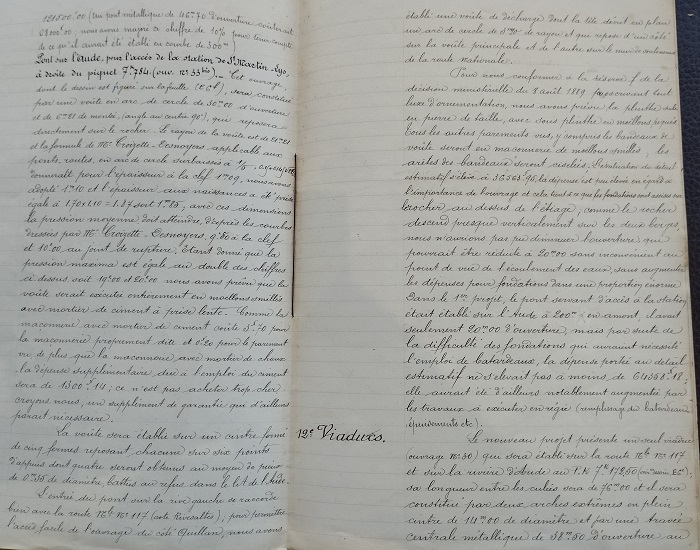 121800f00 (Un pont métallique de 46m70 d'ouverture coûterait
92000f00, nous avons majoré ce chiffre de 10% pour tenir compte
de ce qu'il aurait été établi en courbe de 300m)
Pont sur l'Aude, pour l'accès de la station de St Martin-Lys,
à droite du piquet 7k784. (ouv. no 33bis). — Cet ouvrage,
dont le dessin est figuré sur la feuille, sera constitué
par une voûte en arc de cercle de 30m00 d'ouverture
et de 6m21 de montée, (angle au centre 90°), qui reposera
directement sur le rocher. Le rayon de la voûte est de 21m21
et la formule de Mr Croizette-Desnoyers, applicable aux
ponts, routes, en arc de cercle surbaissés à 1/5
donnerait pour l'épaisseur à la clef 1m09, nous avons
adopté 1m10 et l'épaisseur aux naissances a été prise
égale à 1,70x1,10 = 1,87 soit 1m85, avec ces dimensions
la pression moyenne doit atteindre, d'après les courbes
dressées par Mr Croizette-Desnoyers, 9k50 à la clef
et 10k00 au joint de rupture. Etant donné que la
pression maxima est égale au double des chiffres
ci-dessus soit 19k00 et 20k00 nous avons prévu que la
voûte serait exécutée entièrement en moellons smillés
avec mortier de ciment à prise lente. Comme la
maçonnerie avec mortier de ciment coûte 3f70 pour
la maçonnerie proprement dite et 0f20 pour le parement
vu de plus que la maçonnerie avec mortier de chaux
la dépense supplémentaire due à l'emploi du ciment
sera de 1300f14; ce n'est pas acheter trop cher
croyons nous, un supplément de garantie qui d'ailleurs
paraît nécessaire.
La voûte sera établie sur un cintre formé
de cinq fermes reposant chacune sur six points
d'appuis dont quatre seront obtenus au moyen de pieux
de 0m35 de diamètre, battus au refus dans le lit de l'Aude.
L'entrée du pont sur la rive gauche se raccorde
bien avec la route Nle no 117 (côté Rivesaltes), pour permettre
l'accès facile de l'ouvrage du côté Quillan, nous avons
établi une voûte de décharge dont la tête décrit en plan
un arc de cercle de rayon et qui repose d'un côté
sur la voûte principale et de l'autre sur le mur de soutènement
de la route nationale.
Pour nous conformer à la réserve f de la
décision ministérielle du 3 août 1889 proscrivant tout
luxe d'ornementation, nous avons prévu la plinthe seule
en pierre de taille, avec sous plinthe en moellons piqués
Tous les autres parements vus, y compris les bandeaux de
voûte seront en maçonnerie de moellons smillés, les
arêtes des bandeaux seront ciselées. L'évaluation du détail
estimatif s'élève à 36563f96, la dépense est peu élevée eu égard à
l'importance de l'ouvrage et cela tient à ce que les fondations sont assises sur
rocher au dessus de l'étiage, comme le rocher
descend presque verticalement sur les deux berges,
nous n'aurions pas pu diminuer l'ouverture qui
pourrait être réduite à 20m00 sans inconvénient au
point de vue de l'écoulement des eaux, sans augmenter
les dépenses pour fondations dans une proportion énorme
Dans le 1er projet, le pont servant d'accès à la station
était établi sur l'Aude à 200m en amont, il avait
seulement 20m00 d'ouverture, mais par suite de
la difficulté des fondations qui auraient nécessité
l'emploi de batardeaux, la dépense portée au détail
estimatif ne s'élevait pas à moins de 64358f18,
elle aurait été d'ailleurs notablement augmentée par
les travaux à exécuter en régie (remplissage de batardeaux
épuisements etc).
12e Viaducs.
Le nouveau projet présente un seul viaduc
(ouvrage no 30) qui sera établi sur la route Nle no 117
et sur la rivière d'Aude au P.K 7k172,50
sa longueur entre les culées sera de 76m00 et il sera
constitué par deux arches extrêmes en plein
cintre de 14m00 de diamètre et par une travée
centrale métallique de 38m50 d'ouverture au